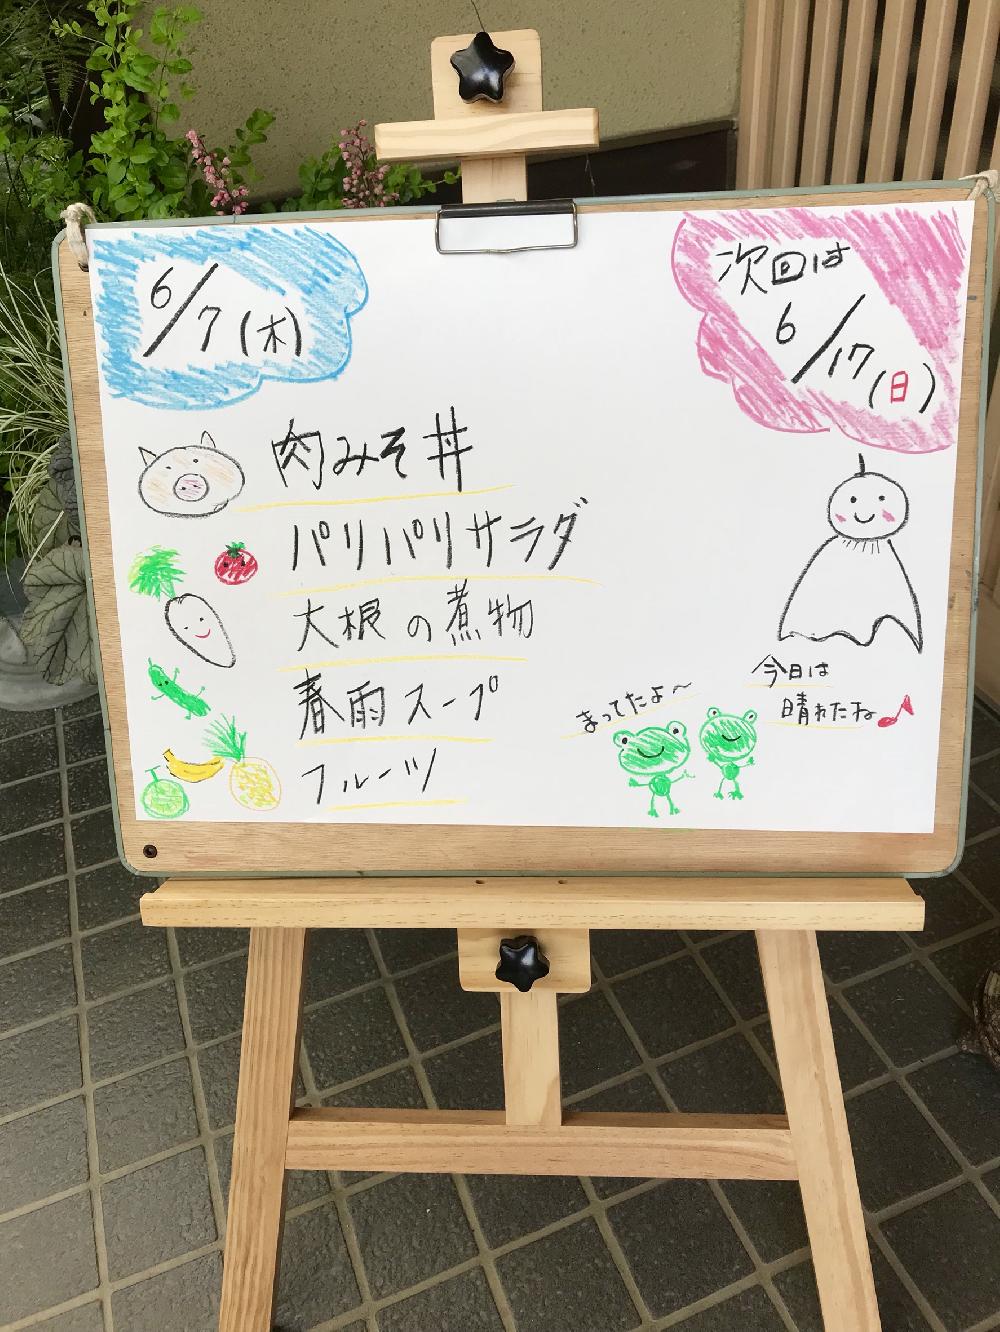 6/7(木)
次回は
6/17(日)
肉みそ丼
パリパリサラダ
大根の煮物
春雨スープ
フルーツ
まってたよ～
今日は
晴れたね♪